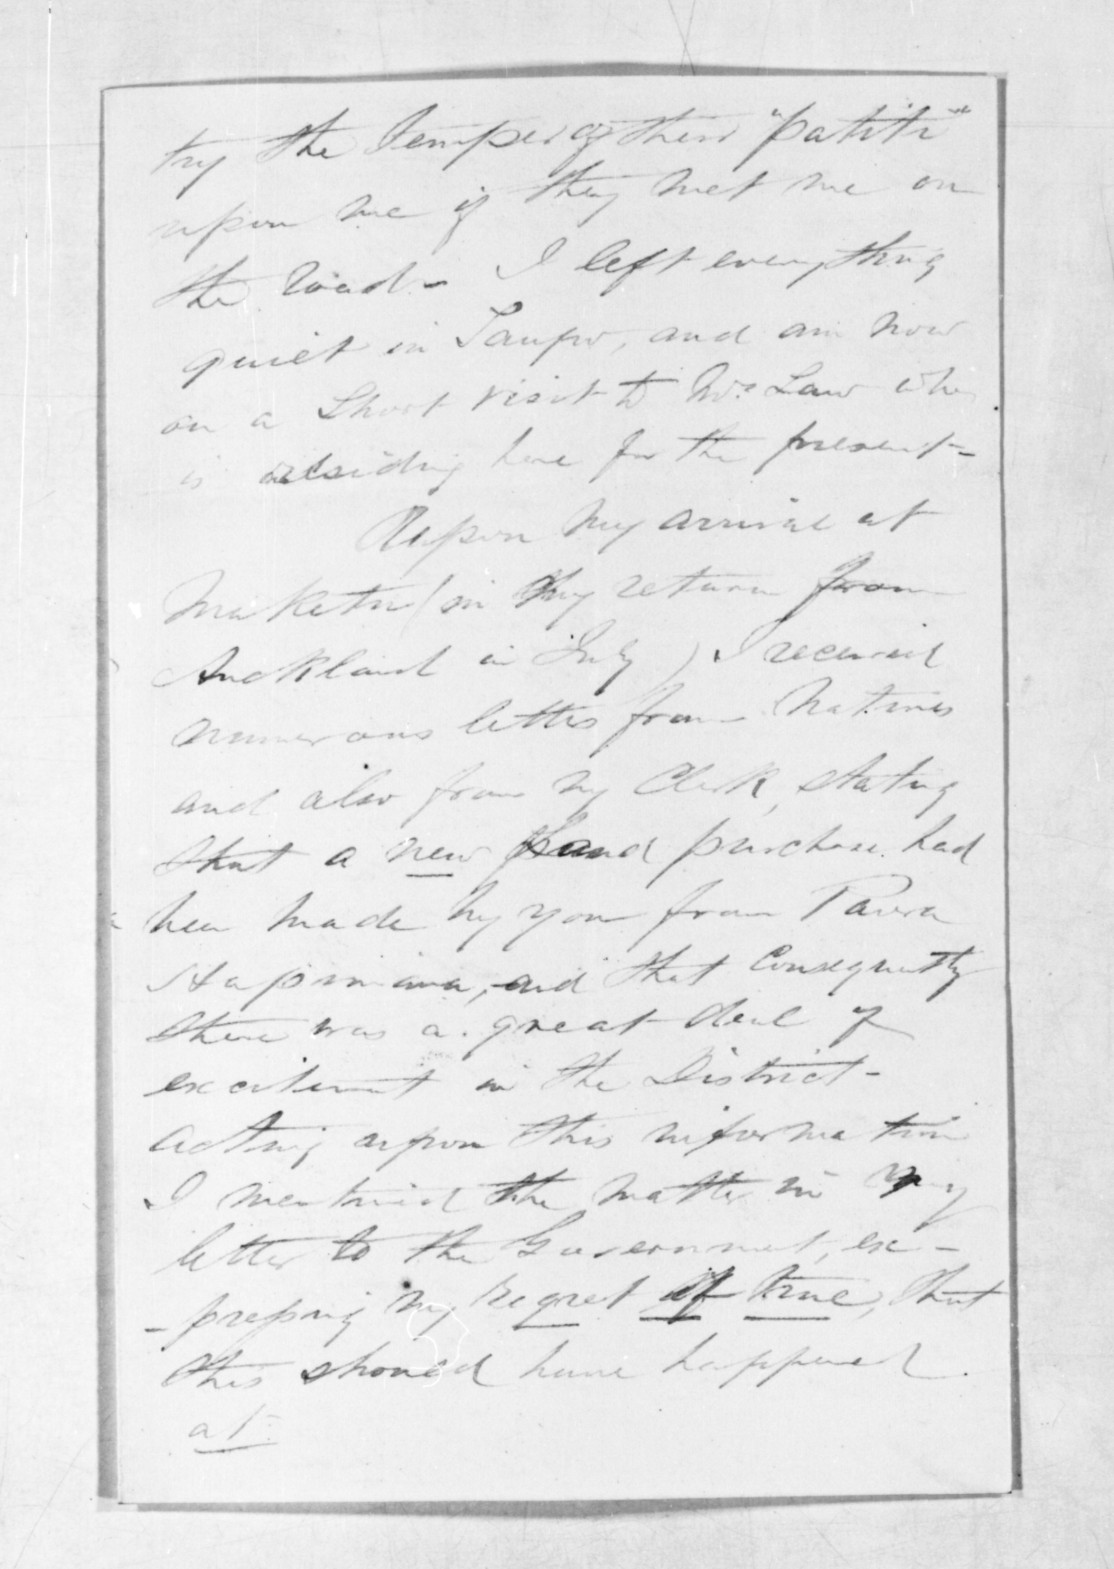 try the Temper of their "patiti"
upon me if they met me on
the road - I left everything
quiet in Taupo, and am now
on a short visit to Mrs Law who
is residing here for the present -
Upon my arrival at
Maketu (in my return from
Auckland in July) I received
numerous letters from Natives
and also from my Clerk, stating
that a new land purchase had
been made by you from Paora
Hapimana, and that consequently
there was a great deal of
excitement in the District -
acting upon this information
I mentioned the matter in my
letter to the Government, ex -
- pressing my regret if true, that
this should have happened
at